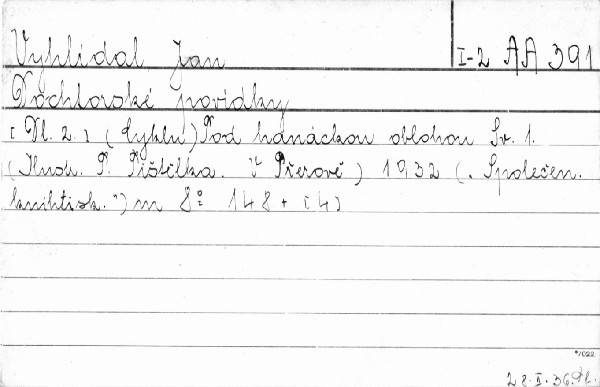 Vyhlídal Jan
I-2 AA 391
Dochtorské povídky
[Dl. 2.] (Cyklu) Pod hanáckou oblohou Sv. 1.
(Ilustr. P. Pištělka. V Přerově) 1932 (. Společen.
knihtisk.") m 8° 148 + [4]
*/022
28. I. 36.